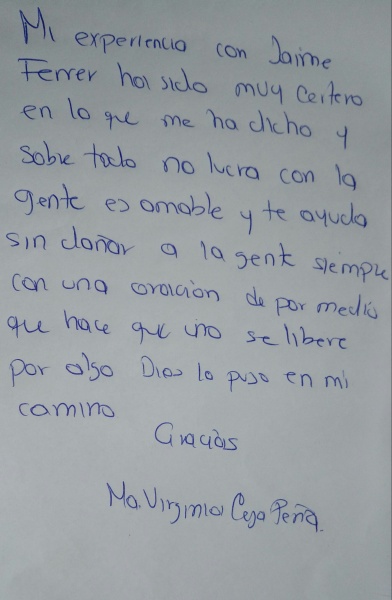 Mi experiencia con Jaime
Ferrer ha sido muy certero
en lo que me ha dicho y
sobre todo no lucra con la
gente es amable y te ayuda
sin dañar a la gente siempre
con una oración de por medio
que hace que uno se libere
por algo Dios lo puso en mi
camino
Gracias
Ma. Virginia Ceja Peña.